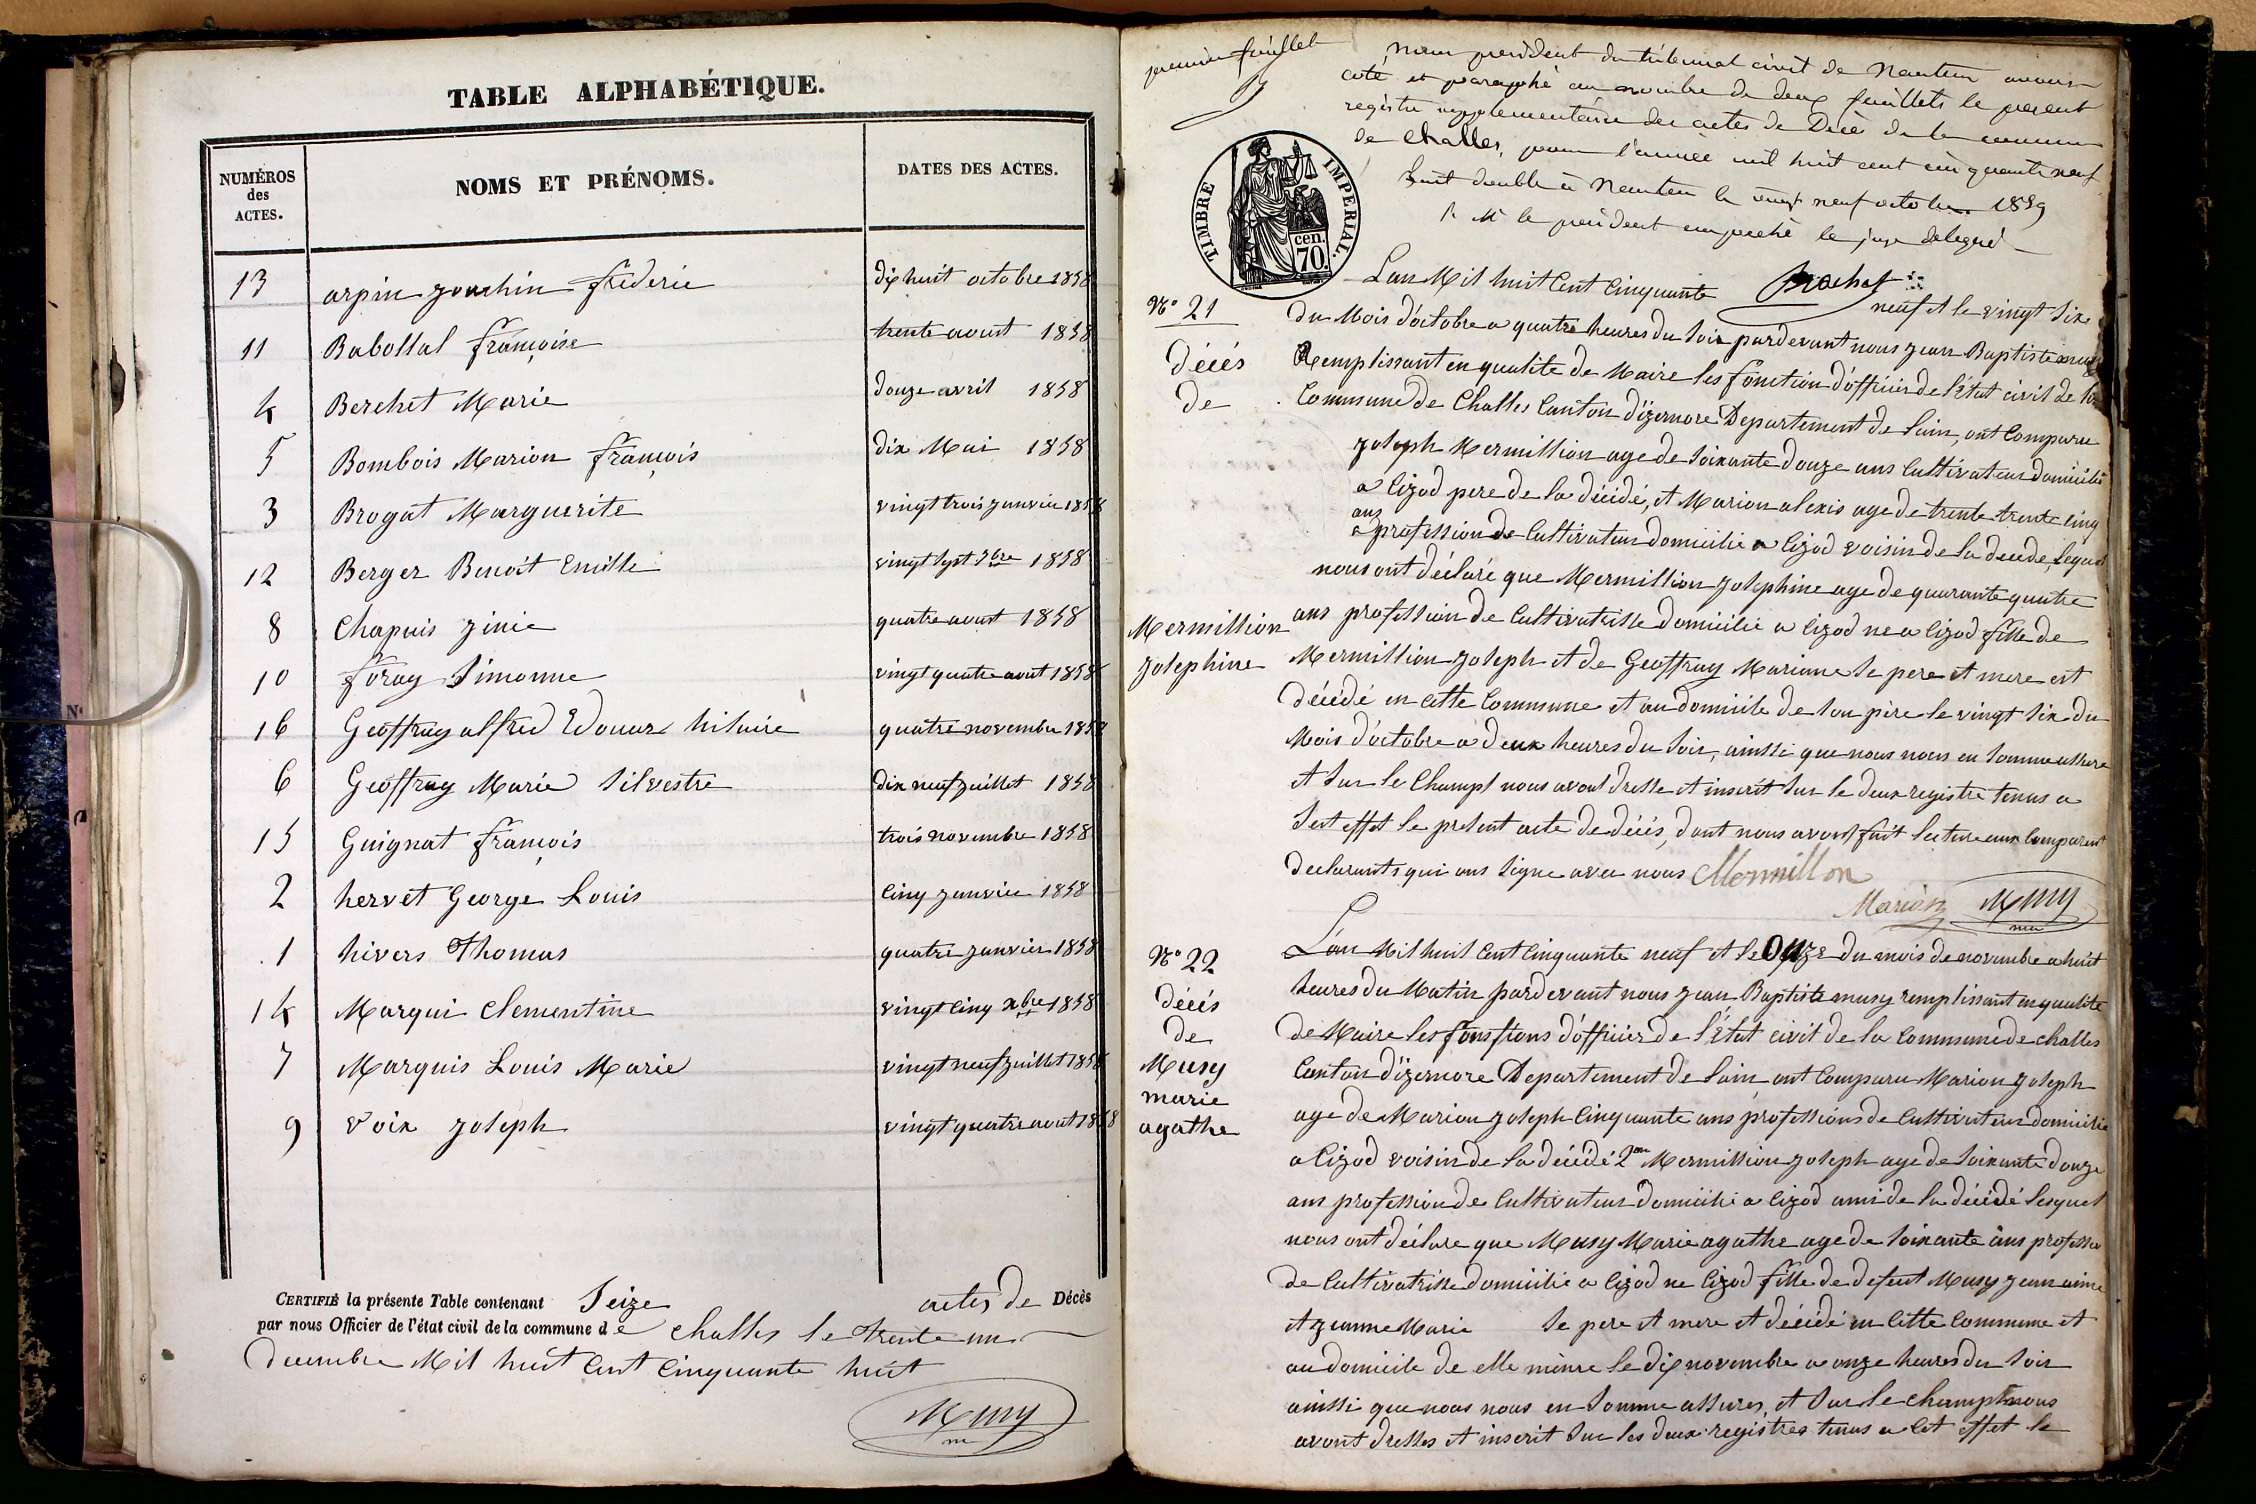 TABLE ALPHABÉTIQUE.
NUMÉROS des ACTES.
NOMS ET PRÉNOMS.
DATES DES ACTES.
13 arpin joachin frederic dix huit octobre 1858
11 Babollal françoise trente aoust 1858
4 Berchet Marie douze avril 1858
5 Bombois Marion françois dix Mai 1858
3 Brogat Marguerite vingt trois janvier 1858
12 Berger Benoit Emille vingt sept 7bre 1858
8 Chapuis jinie quatre aoust 1858
10 foray Simonne vingt quatre aout 1858
16 Geoffray alfred Edouar hilaire quatre novembre 1858
6 Geoffray Marie Silvestre dix neuf juillet 1858
15 Guignat françois trois novembre 1858
2 hervet George Louis cinq janvier 1858
1 hivers Thomas quatre janvier 1858
14 Marqui Clementine vingt cinq xbre 1858
7 Marquis Louis Marie vingt neuf juillet 1858
9 voix joseph vingt quatre aout 1858
CERTIFIÉ la présente Table contenant Seize actes de Décès
par nous Officier de l'état civil de la commune de Challes le trente un
decembre Mil huit Cent Cinquante huit
Musy
premier feuillet
Nous president du tribunal civil de Nantua avons
coté et paraphé au nombre de deux feuillets le present
registre supplementaire des actes de Décès de la commune
de Challes, pour l'année mil huit cent cinquante neuf
Fait double à Nantua le vingt neuf octobre 1859
P. Mr le president empeché le juge delegué
TIMBRE IMPERIAL.
cen.
70.
Lan Mil huit Cent Cinquante neuf et le vingt six
N° 21
décés
de
Mermillion
josephine
du Mois d'octobre a quatre heures du soir pardevant nous jean Baptiste musy
Remplissant en qualite de Maire les fonction d'officier de l'état civil de la
Commune de Challes Canton d'izernore Departement de lain, ont Comparu
joseph Mermillion age de soixante douze ans Cultivateur domicilié
a Cizod pere de la décidé, et Marion alexis age de trente trente cinq
ans
a profession de Cultivateur domicilie a Cizod voisin de la decide, lequel
nous ont déclaré que Mermillion josephine age de quarante quatre
ans profession de Cultivatrisse domicilie a Cizod ne a Cizod fille de
Mermillion joseph et de Geoffray Marianne se pere et mere est
décédé en cette Commune et au domicile de son père le vingt six du
Mois d'octobre a deux heures du soir, ainssi que nous nous en somme assure
et sur le Champt nous avont dresse et inscrit sur le deux registre tenus a
sest effet le present acte de décés, dont nous avont fait lecture aux comparent
declarants qui ons signe avec nous Mermillon
Marion Musy
N° 22
décés
de
Musy
marie
agathe
L'an Mil huit Cent Cinquante neuf et le Onze du mois de novembre a huit
heures du Matin pardevant nous jean Baptiste musy remplissant en qualite
de Maire les fonstions d'officier de l'État civil de la Commune de challes
Canton d'izernore Departement de lain, ont Comparu Marion joseph
age de Marion joseph Cinquante ans professions de Cultivateur domicilie
a Cizod voisin de la décidé 2me Mermillion joseph age de soixante douze
ans profession de Cultivateur domicilié a Cizod ami de la décidé lesquel
nous ont déclare que Musy Marie agathe age de soixante ans profession
de Cultivatrisse domicilie a Cizod ne Cizod fille de defent Musy jean aime
et jeanne Marie se pere et mere et décidé en Cette Commune et
au domicile de elle même le dix novembre a onze heures du soir
ainssi que nous nous en somme assures, et sur le champt nous
avont dresses et inscrit sur les deux registres tenus a cet effet le